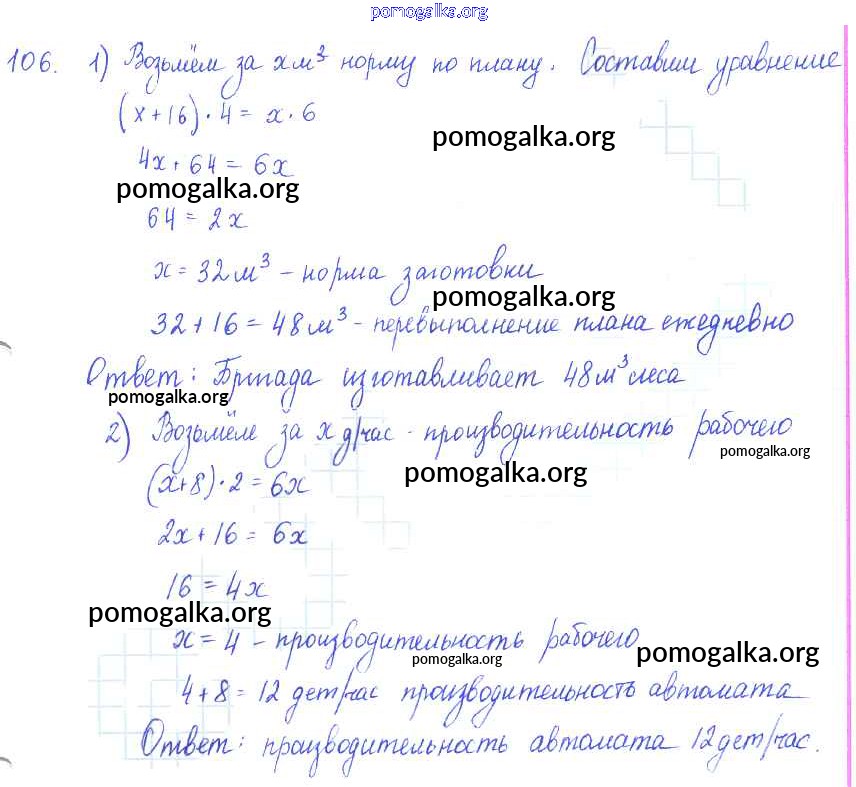 pomogalka.org
106. 1) Возьмём за х м³ норму по плану. Составим уравнение
(х+16)·4 = х·6
pomogalka.org
4х+64 = 6х
pomogalka.org
64 = 2х
х = 32 м³ - норма заготовки
pomogalka.org
32+16 = 48 м³ - перевыполнение плана ежедневно
Ответ: Бригада изготавливает 48 м³ леса
pomogalka.org
2) Возьмём за х д/час - производительность рабочего
pomogalka.org
(х+8)·2 = 6х
pomogalka.org
2х+16 = 6х
16 = 4х
pomogalka.org
х = 4 - производительность рабочего
pomogalka.org
pomogalka.org
4+8 = 12 дет/час производительность автомата
Ответ: производительность автомата 12 дет/час.